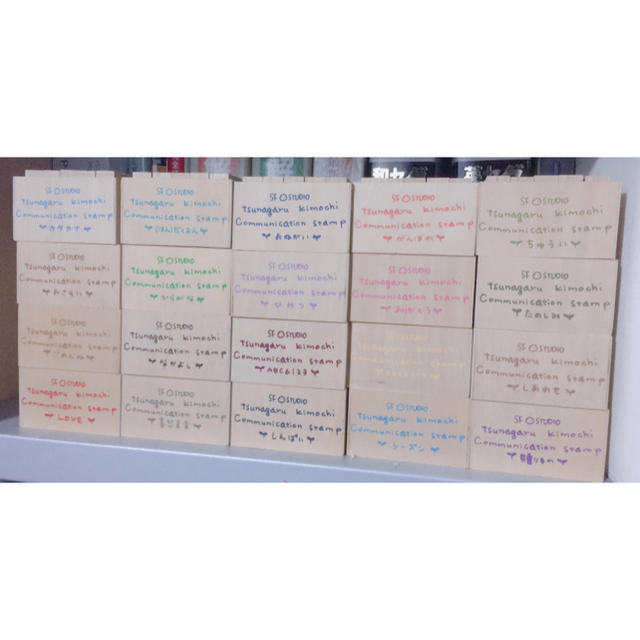 SF STUDIO
Tsunagaru kimochi
Communication stamp
カタカナ
SF STUDIO
Tsunagaru kimochi
Communication stamp
SF STUDIO
Tsunagaru kimochi
Communication stamp
おねがい
SF STUDIO
Tsunagaru kimochi
Communication stamp
がんばれ
SF STUDIO
Tsunagaru kimochi
Communication stamp
ちゅうい
SF STUDIO
Tsunagaru kimochi
Communication stamp
おさそい
SF STUDIO
Tsunagaru kimochi
Communication stamp
ひらがな
SF STUDIO
Tsunagaru kimochi
Communication stamp
ひみつ
SF STUDIO
Tsunagaru kimochi
Communication stamp
ありがとう
SF STUDIO
Tsunagaru kimochi
Communication stamp
たのしみ
SF STUDIO
Tsunagaru kimochi
Communication stamp
ごめんね
SF STUDIO
Tsunagaru kimochi
Communication stamp
なかよし
SF STUDIO
Tsunagaru kimochi
Communication stamp
ABC&123
SF STUDIO
Tsunagaru kimochi
Communication stamp
SF STUDIO
Tsunagaru kimochi
Communication stamp
しあわせ
SF STUDIO
Tsunagaru kimochi
Communication stamp
LOVE
SF STUDIO
Tsunagaru kimochi
Communication stamp
SF STUDIO
Tsunagaru kimochi
Communication stamp
しんぱい
SF STUDIO
Tsunagaru kimochi
Communication stamp
シーズン
SF STUDIO
Tsunagaru kimochi
Communication stamp